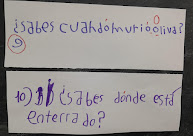 ¿sabes cuando murió oliva?
9
10) ¿sabes dónde está
enterrado?